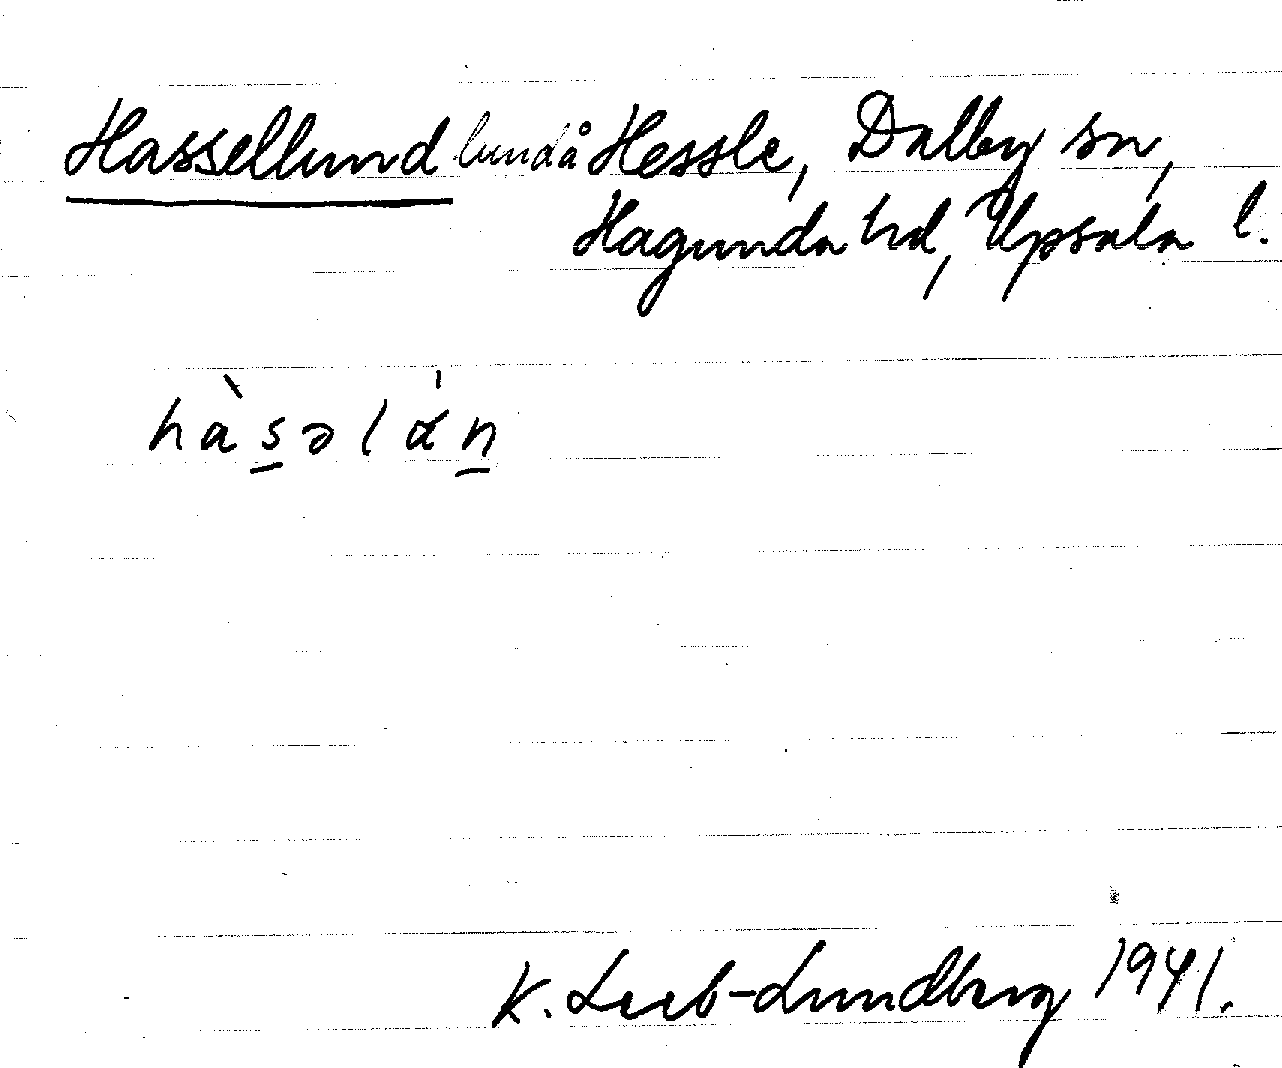 Hassellund lund å Hessle, Dalby sn,
Hagunda hd, Upsala l.
hàs̲əlάn̲
K. Leeb-Lundberg 1941.